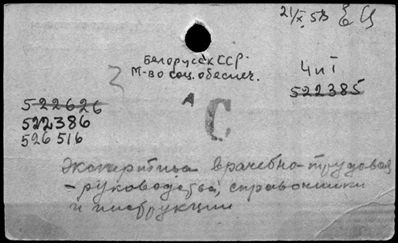 21/X 53 ЕЦ
Белорусск ССР.
М-во соц. обеспеч.
Ч и Т
522385
522626
522386
526516
А
С
Экспертиза врачебно-трудовая
- руководства, справочники
и инструкции